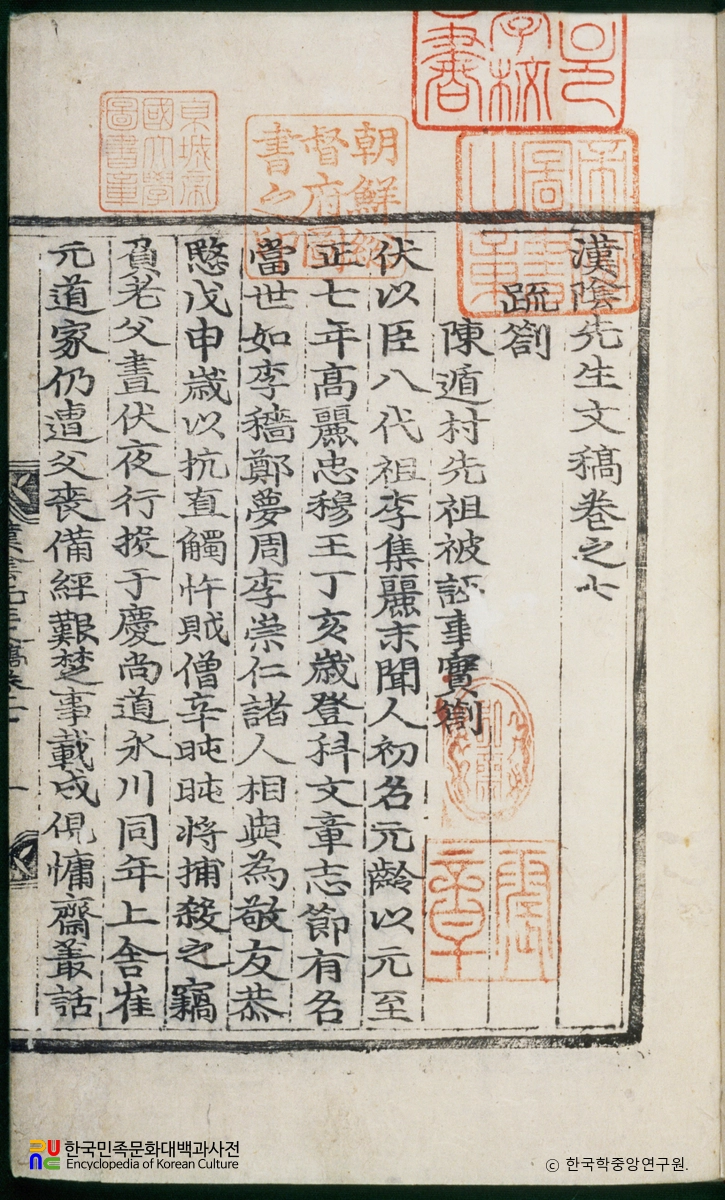 漢陰先生文稿卷之七
疏劄
陳遁村先祖被誣事實劄
伏以臣八代祖李集麗末聞人初名元齡以元至
正七年高麗忠穆王丁亥歲登科文章志節有名
當世如李穡鄭夢周李崇仁諸人相與為敬友恭
愍戊申歲以抗直觸忤賊僧辛旽旽將捕殺之竊
負老父晝伏夜行投于慶尚道永川同年上舍崔
元道家仍遭父喪備經艱楚事載成俔慵齋叢話
朝鮮總督府圖書之印
京城帝國大學圖書章
한국민족문화대백과사전
Encyclopedia of Korean Culture
© 한국학중앙연구원.